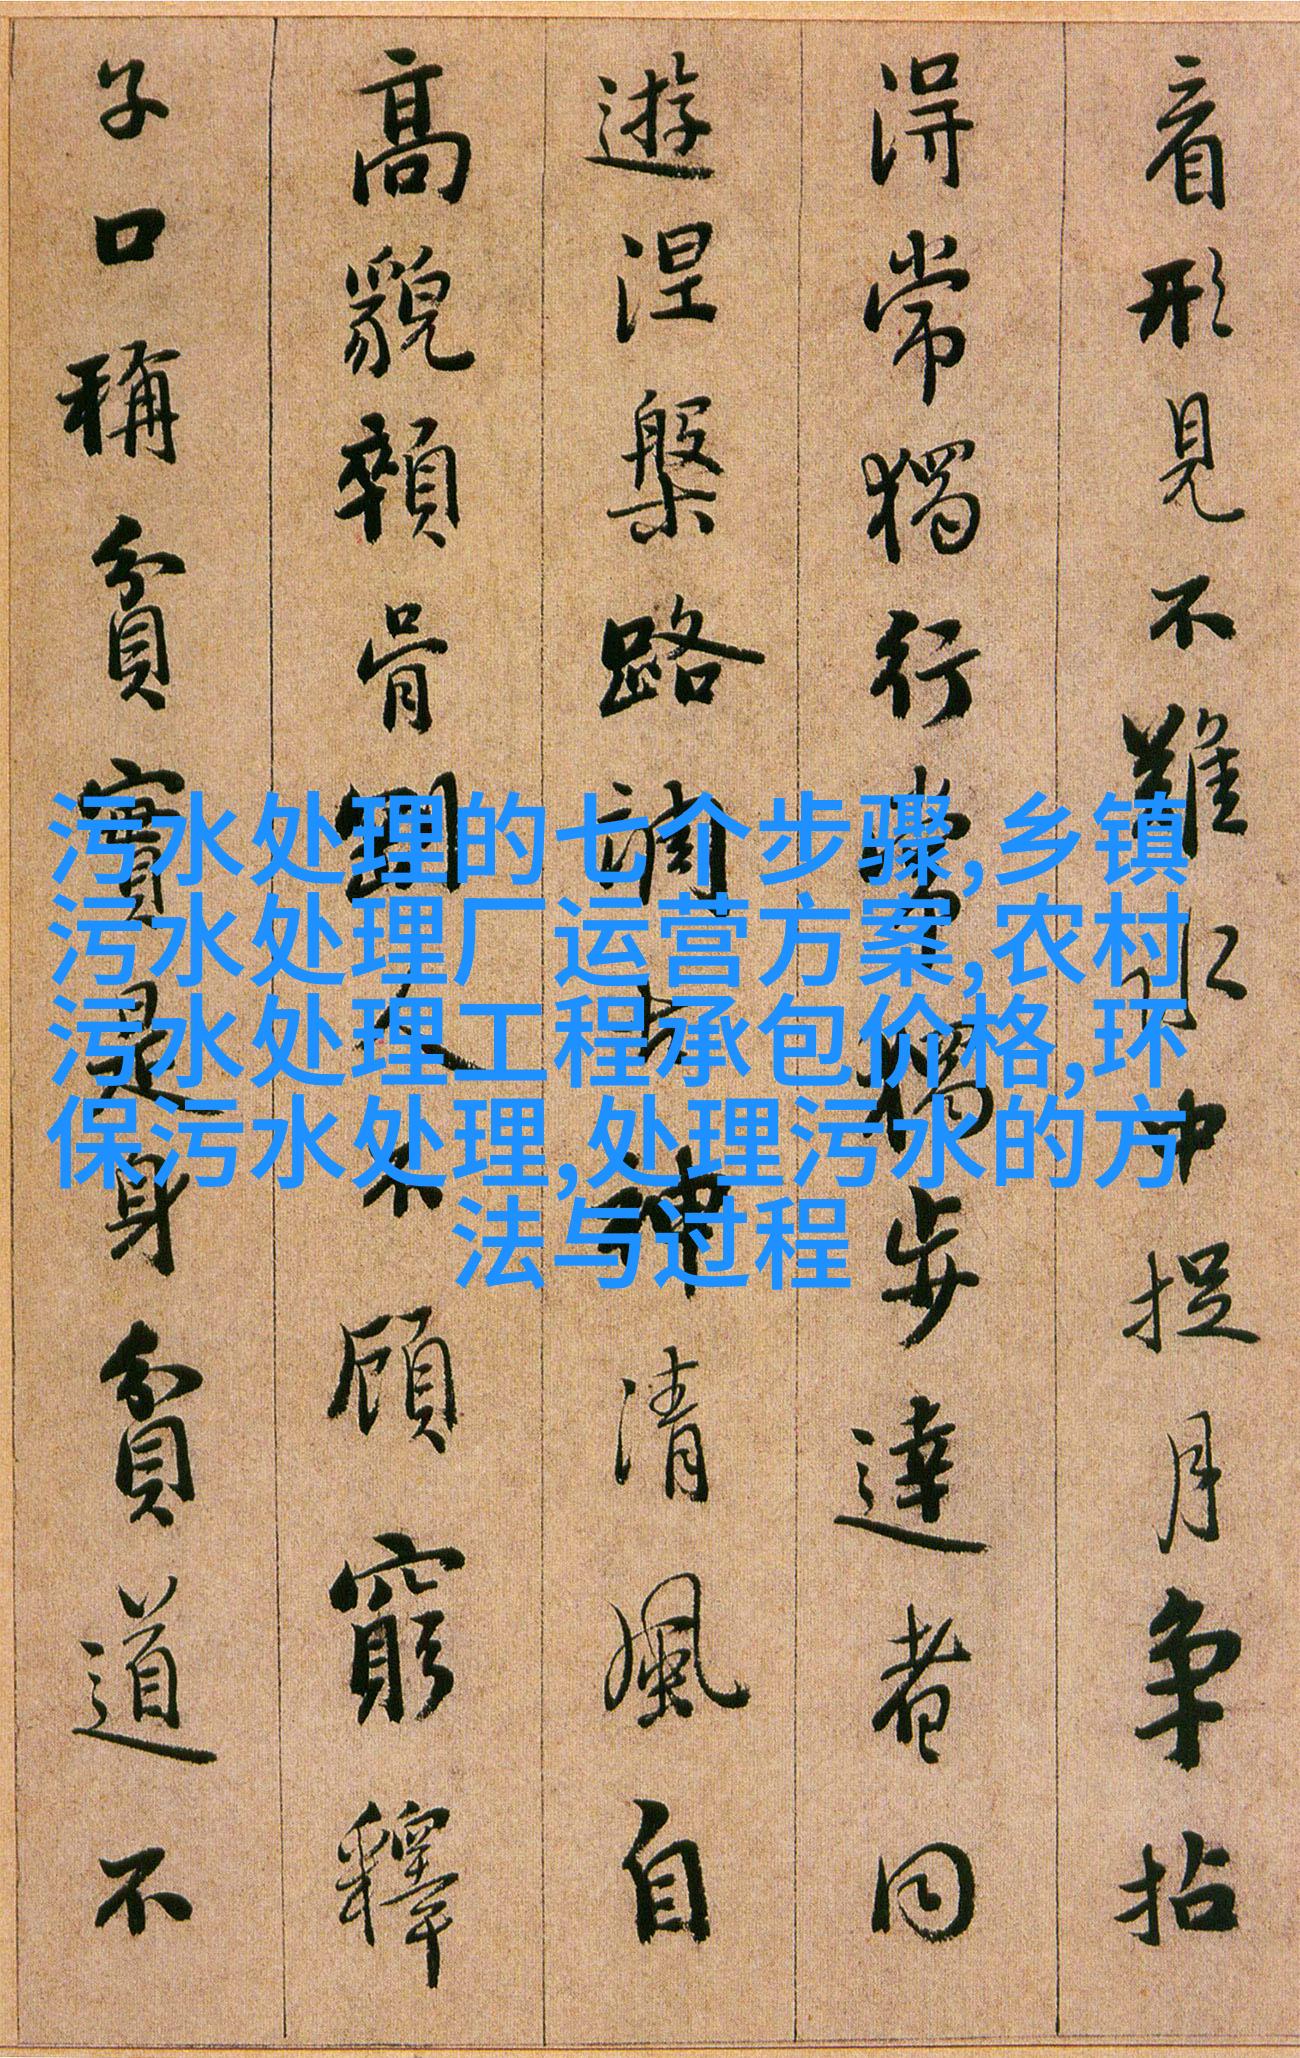 看形見不難水中捉月爭拈
得常獨行常獨步達者同
遊涅槃路調古神清風自
高貌顇骨剛人不顧窮釋
子口稱貧實是身貧道不
污水处理的七个步骤,乡镇
污水处理厂运营方案,农村
污水处理工程承包价格,环
保污水处理,处理污水的方
法与过程